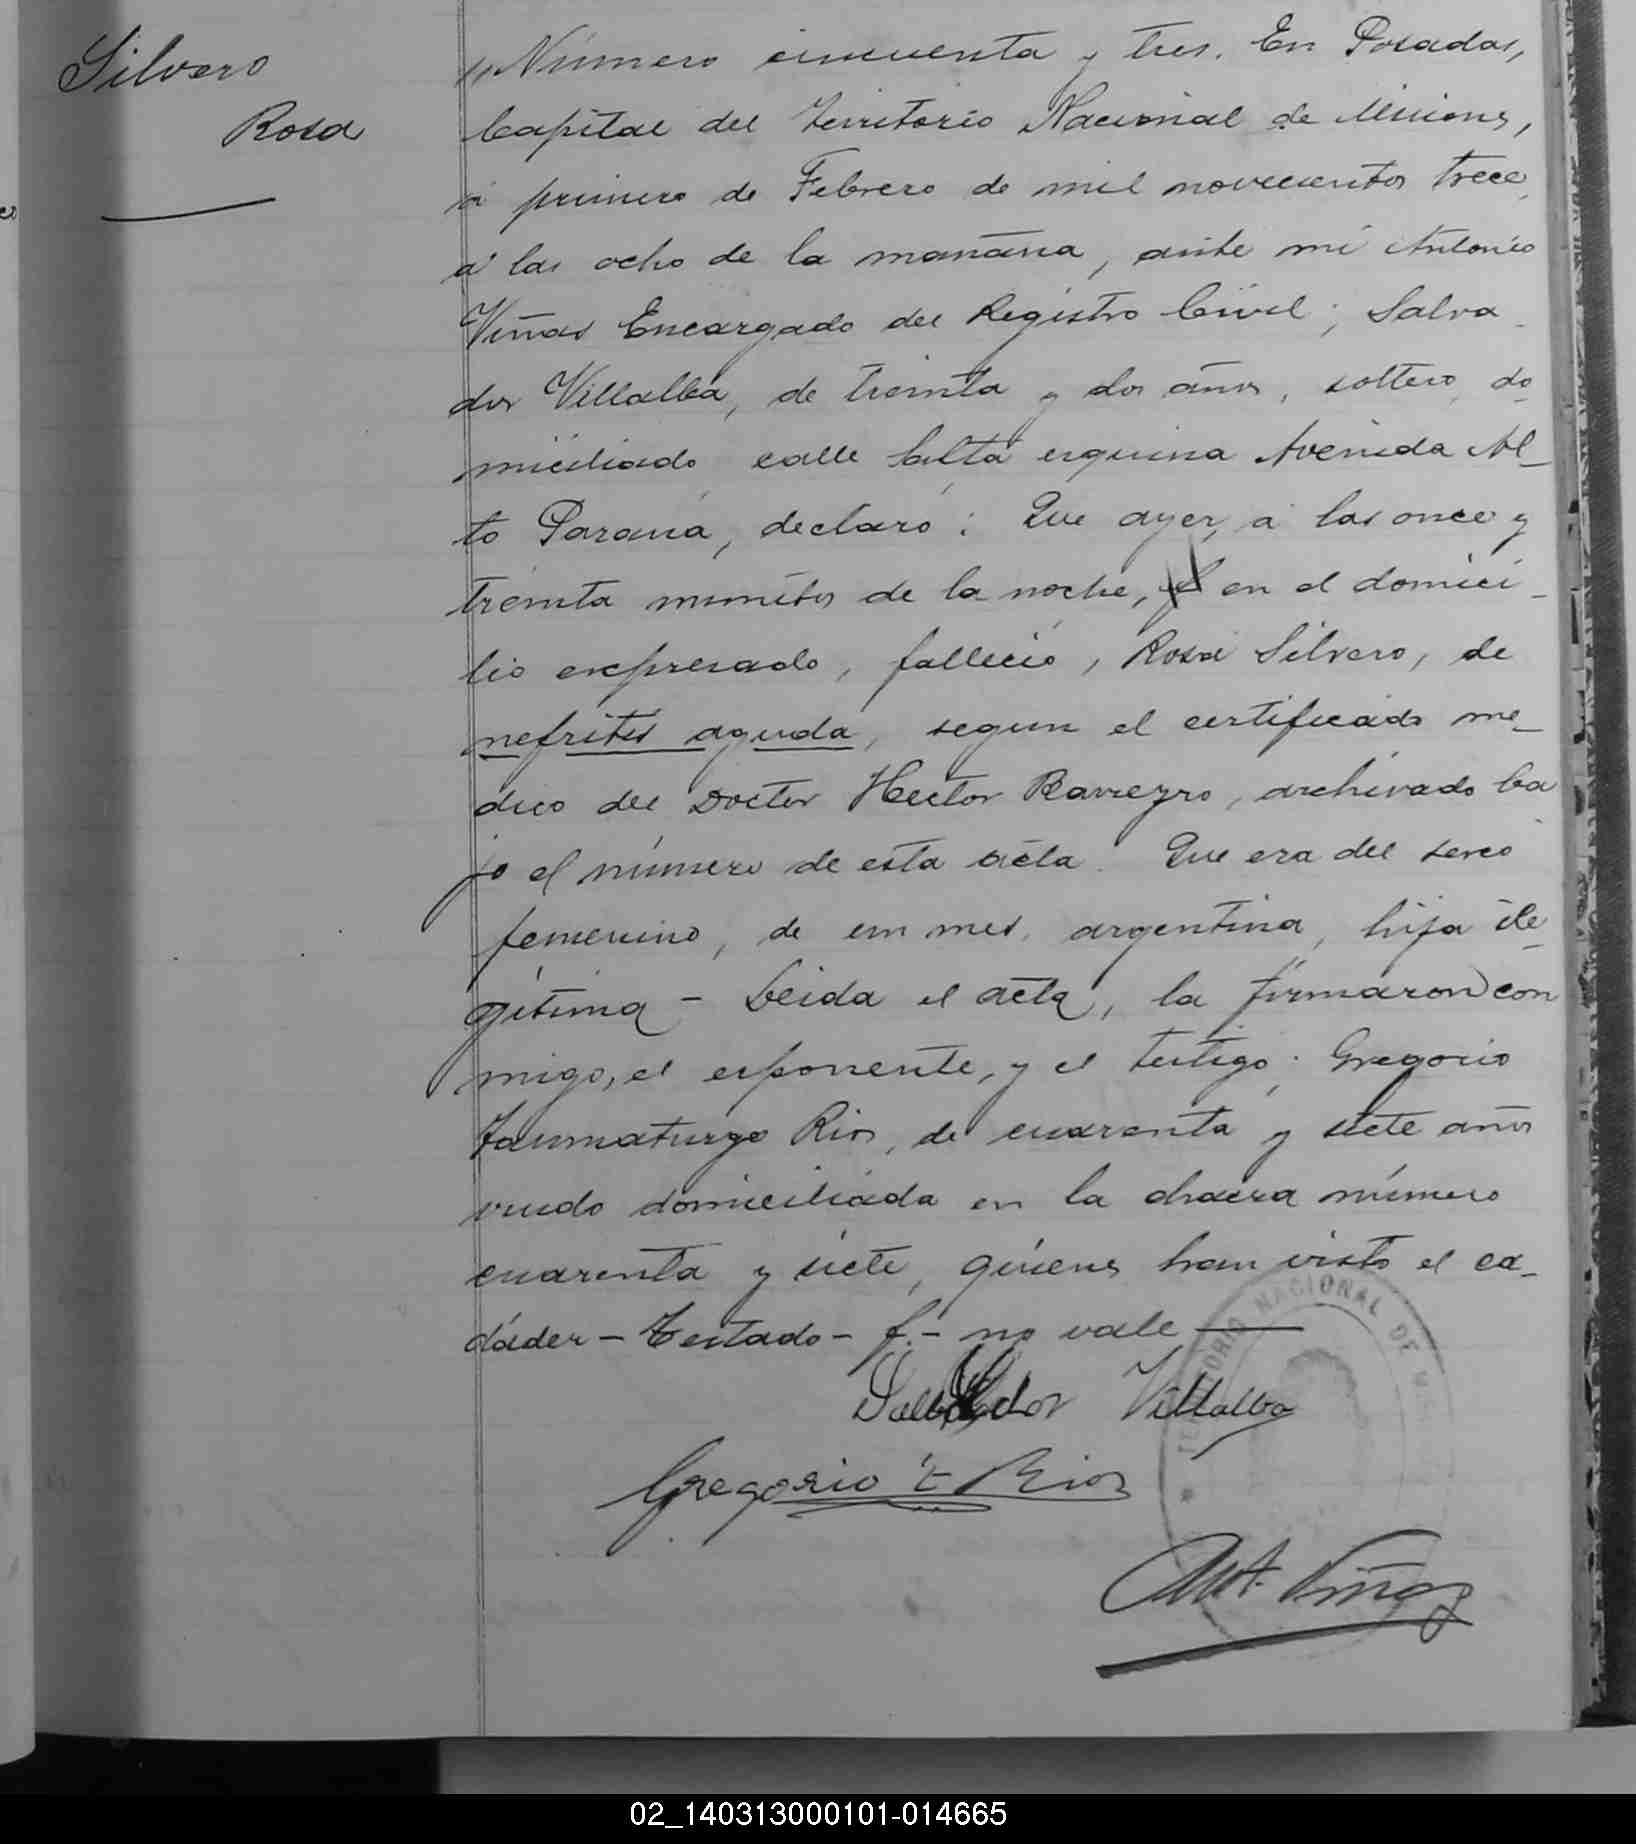 Silvero
Rosa
"Número cincuenta y tres. En Posadas,
Capital del Territorio Nacional de Misiones,
á primero de Febrero de mil novecientos trece,
á las ocho de la mañana, ante mí Antonio
Viñas Encargado del Registro Civil; Salva-
dor Villalba, de treinta y dos años, soltero, do-
miciliado calle Salta esquina Avenida Al-
to Paraná, declaró: Que ayer, á las once y
treinta minutos de la noche, f en el domici-
lio expresado, falleció, Rosa Silvero, de
nefritis aguda, segun el certificado me-
dico del Doctor Hector Barreyro, archivado ba
jo el número de esta acta. Que era del sexo
femenino, de un mes, argentina, hija ile-
gitima - Leida el acta, la firmaron con
migo, el exponente, y el testigo; Gregorio
Taumaturgo Rios, de cuarenta y siete años
viudo domiciliada en la chacra número
cuarenta y siete, quienes han visto el ca-
dáder - Testado - f. - no vale
Salbador Villalba
Gregorio T Rios
Ant. Viñas
TERRITORIO NACIONAL DE
02_140313000101-014665